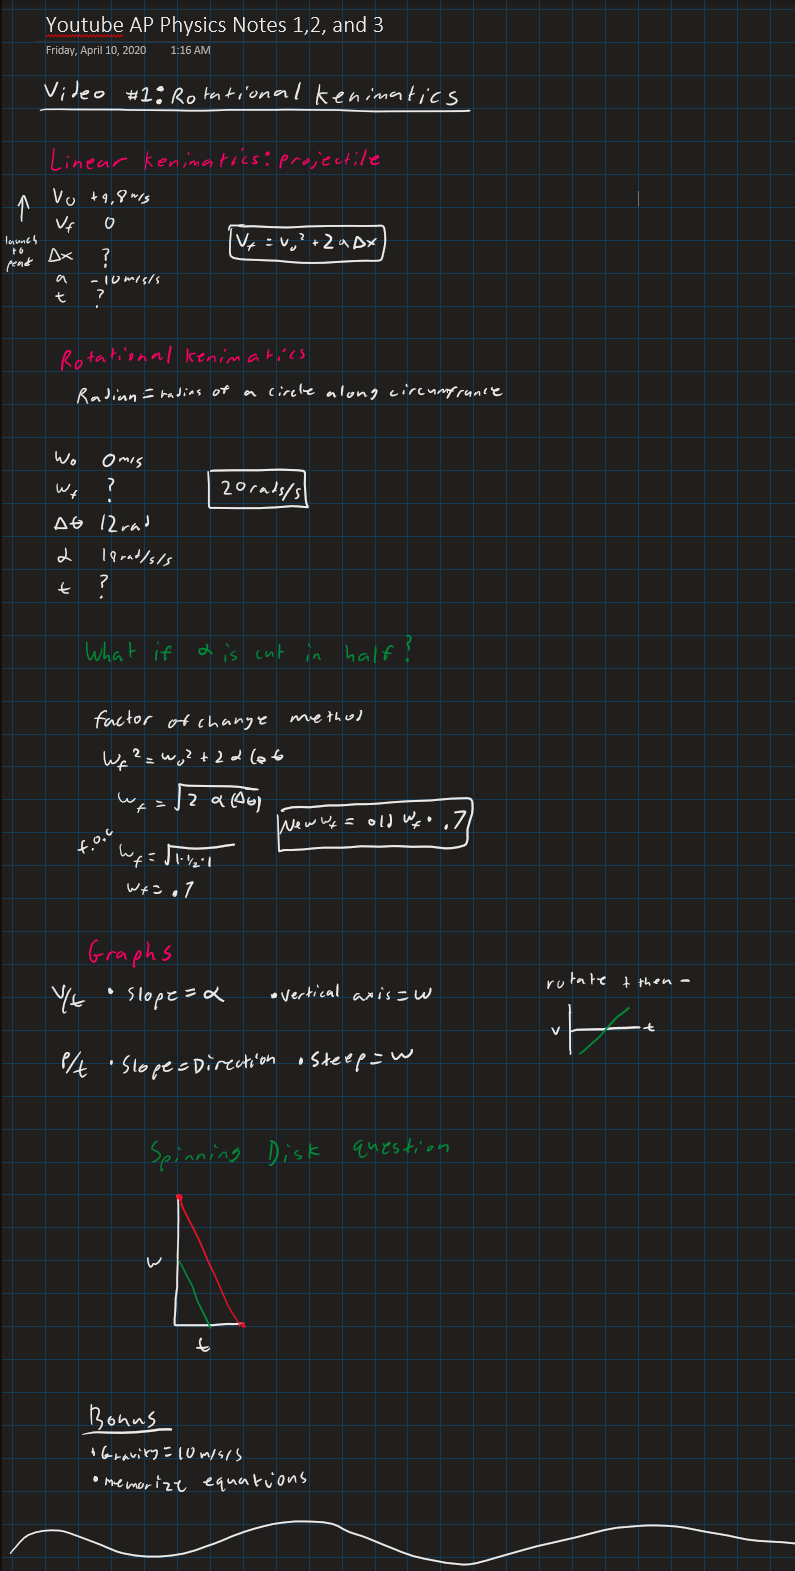 Youtube AP Physics Notes 1,2, and 3
Friday, April 10, 2020 1:16 AM
Video #1: Rotational kenimatics
Linear kenimatics: projectile
↑ launch to peak
V₀ +9,8 m/s
Vf 0
Δx ?
a -10 m/s/s
t ?
Vf = v₀² + 2aΔx
Rotational kenimatics
Radian = radius of a circle along circumfrance
W₀ 0 m/s
Wf ?
Δθ 12 rad
α 19 rad/s/s
t ?
20 rads/s
What if α is cut in half?
factor of change method
Wf² = w₀² + 2α
Wf = √2 α(Δθ)
f.o.c Wf = √1·1/2·1
Wf = .7
New Wf = old Wf · .7
Graphs
V/t • Slope = α • vertical axis = W
P/t • Slope = Direction • Steep = W
rotate + then -
V t
Spinning Disk question
W
t
Bonus
• Gravity = 10 m/s/s
• memorize equations